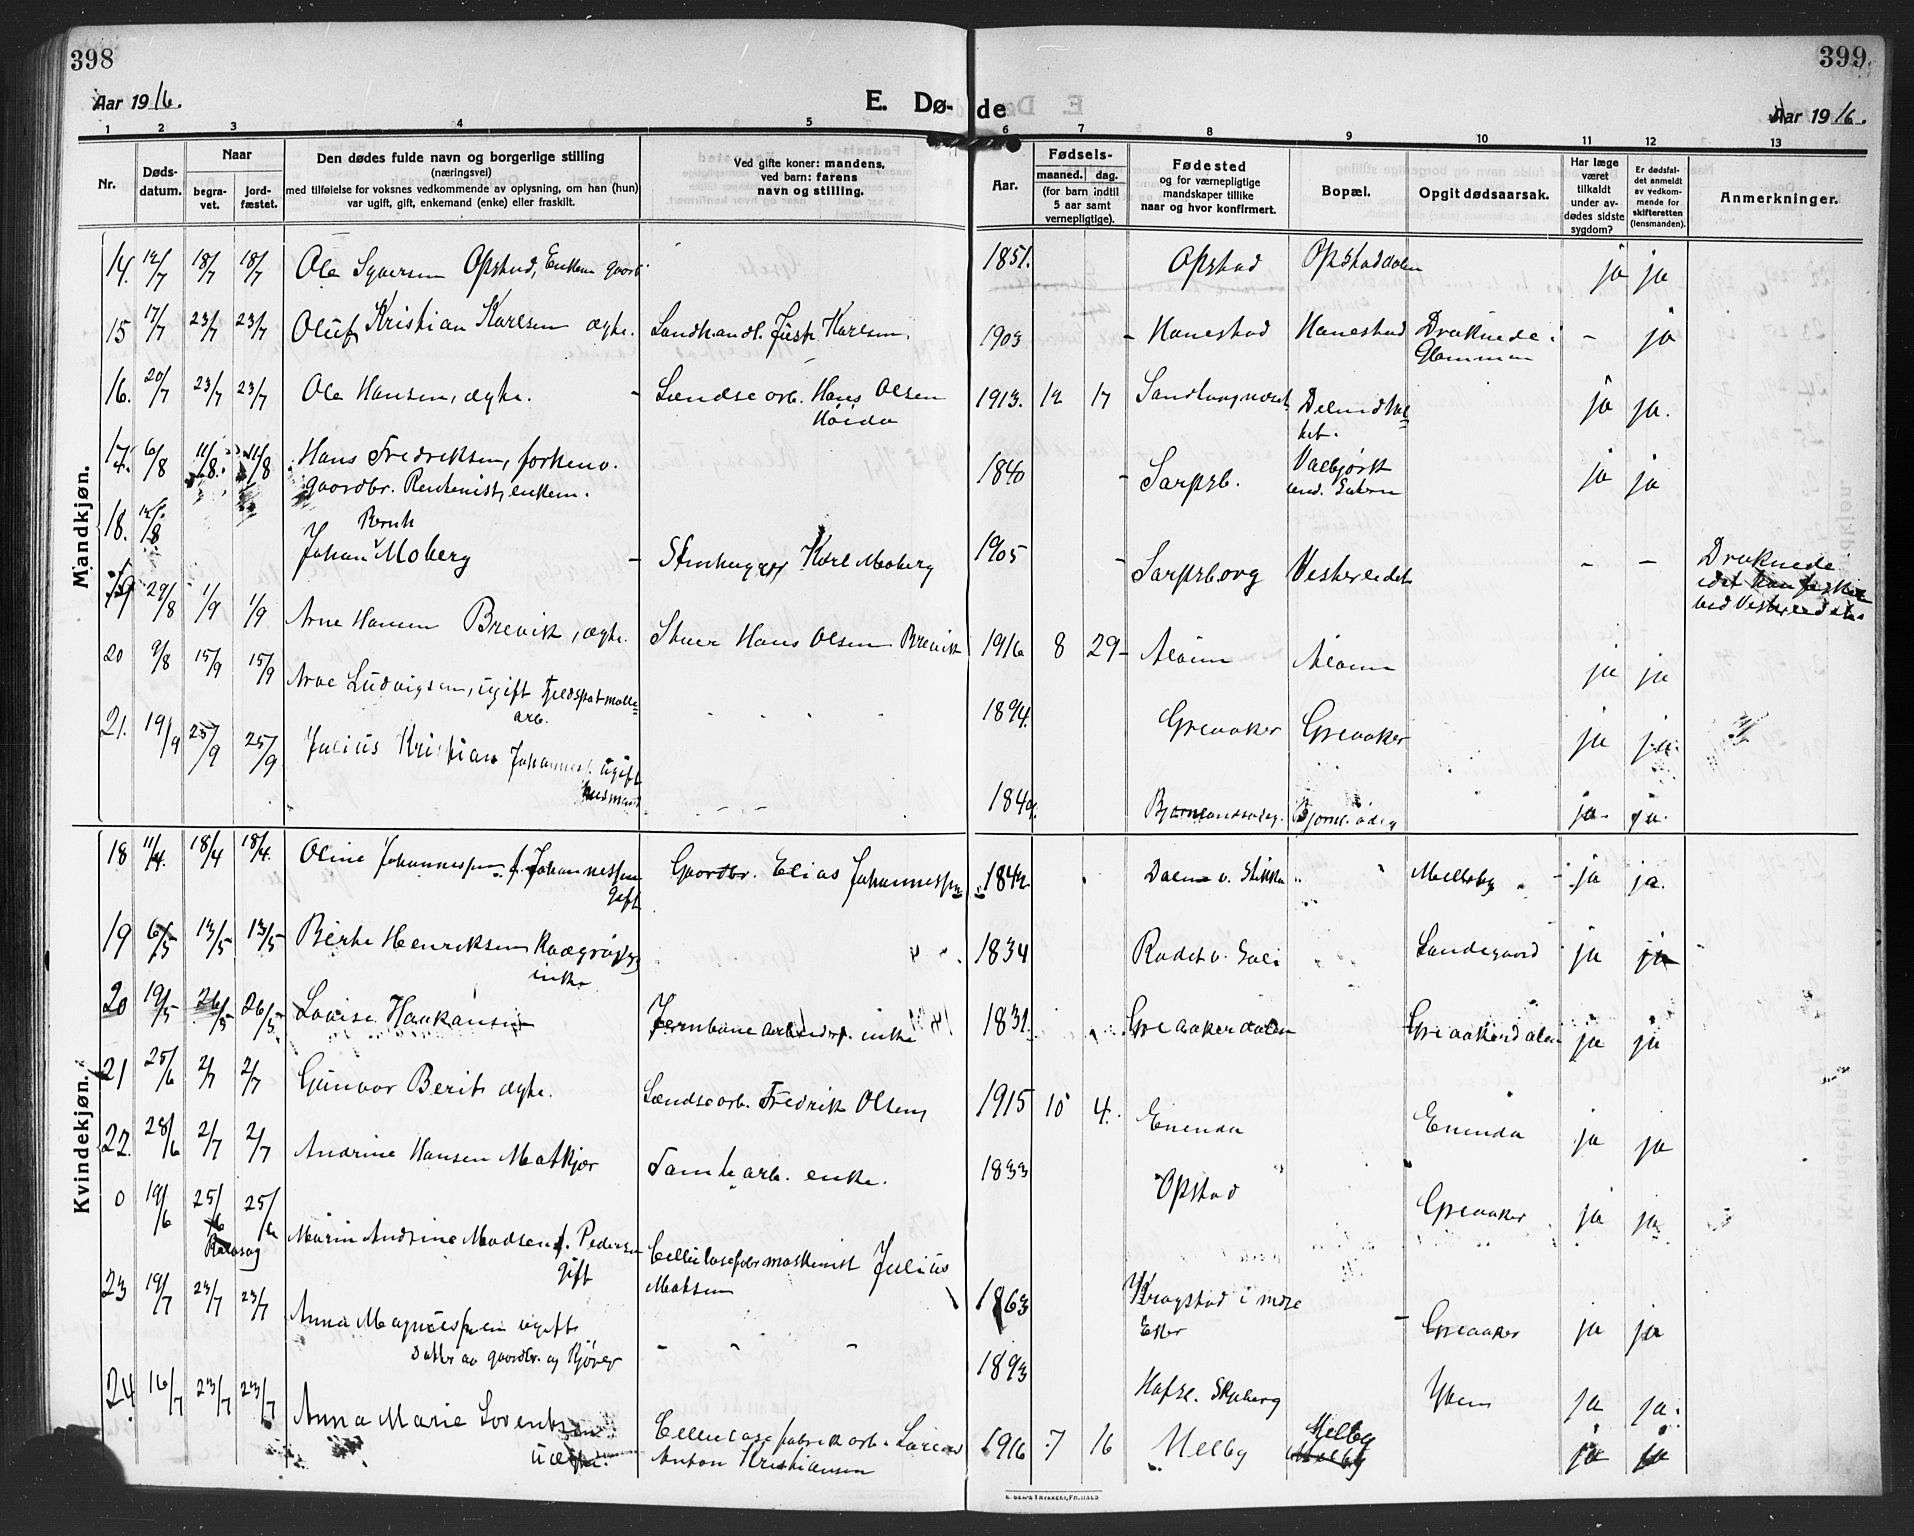 398
399.
Aar 1916.
E. Dø-
de
Aar 1916.
1 2 3 4 5 6 7 8 9 10 11 12 13
Nr.
Døds-
datum.
Naar
begra-
vet.
jord-
fæstet.
Den dødes fulde navn og borgerlige stilling
(næringsvei)
med tilføielse for voksnes vedkommende av oplysning, om han (hun)
var ugift, gift, enkemand (enke) eller fraskilt.
Ved gifte koner: mandens,
ved barn: farens
navn og stilling.
Aar.
Fødsels-
maaned. dag.
(for barn indtil
5 aar samt
vernepligtige).
Fødested
og for værnepligtige
mandskaper tillike
naar og hvor konfirmert.
Bopæl.
Opgit dødsaarsak.
Har læge
været
tilkaldt
under av-
dødes sidste
sygdom?
Er dødsfal-
det anmeldt
av vedkom-
mende for
skifteretten
(lensmanden).
Anmerkninger.
Mandkjøn.
14. 12/7 18/7 18/7 Ole Syversen Opstad, Enkem. gaardb 1851. Opstad Opstaddalen ja ja
15 17/7 23/7 23/7 Oluf Kristian Karlsen ægte. Landhandl. Karlsen. 1903 - Hanestad Hanestad Druknede i - ja
Glommen
16. 20/7 23/7 23/7 Ole Hansen, ægte. - Lændsearb. Hans Olsen 1913. 12 17 ja ja.
17. 6/8 11/8. 11/8 Hans Fredriksen, forhenv. 1840 - Sarpsb. ja ja
gaardbr. Rentenist, enkem.
18. 12/8 Bernh
Johan Moberg - Karl Moberg 1905 - Sarpsborg Vesterledet - - Druknede
19 29/8 1/9 1/9 Arne Hansen Brevik, ægte. Stuer Hans Olsen Brevik 1916 8 29 - ja ja
20 9/8 15/9 15/9 Arve Ludvigsen, ugift Feldspatmølle=
arb. 1894. Greaaker Greaaker ja ja
21. 19/9 25/9 25/9 Julius Kristian Johannes. ugift 1849. ja. ja.
Kvindekjøn.
18 11/4. 18/4 18/4. Oline Johannessen f. Johannessen Gaardbr. Elias Johannessen 1842 Melleby - ja ja.
gift
19 6/5 13/5 13/5 Berte Henriksen 1834 Landegaard ja ja
enke
20 19/5 26/5 26/5 Lovise Haakansen Jernbanearbeiders. enke 1831. Greaakerdalen Greaakerdalen ja ja
21 25/6 2/7 2/7 Gunvor Berit ægte. Lændsearb. Fredrik Olsen, 1915 10 4. Enenda Enenda ja ja
22. 28/6 2/7 2/7 Andrine Hansen Matkjær Tomtearb. enke. 1833 Opstad Greaaker ja ja
0 19/6 25/6 25/6 Marin Andrine Madsen f. Pedersen Cellulosefabr maskinist Julius
Rolvsøy gift Matsen 1863 Kragstad i Greaaker ja ja
23 19/7 23/7 23/7 Anna Magnussen ugift - 1893 Hafsl. Skjeberg Yven ja ja.
Datter av gaardbr. og
24 16/7 23/7 23/7 Anna Marie Lorentsen Cellulosefabrikarb. 1916 7 16 Melby Melby ja ja
uægte. Anton Kristiansen